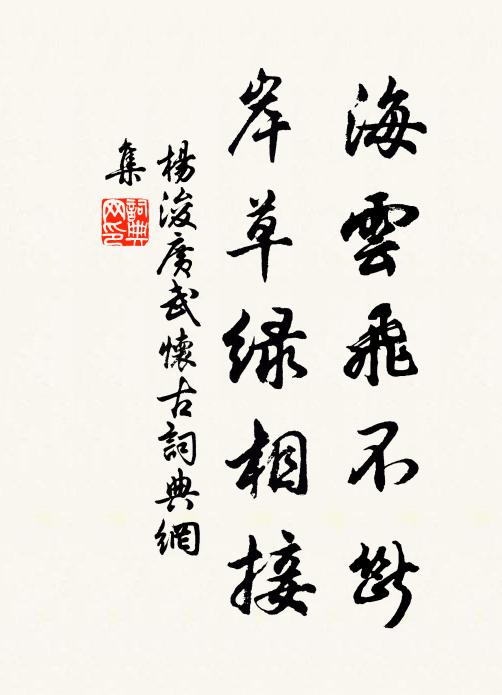 海雲飛不斷
岸草綠相接
楊浚廣武懷古詞典網
集
詞典
网印